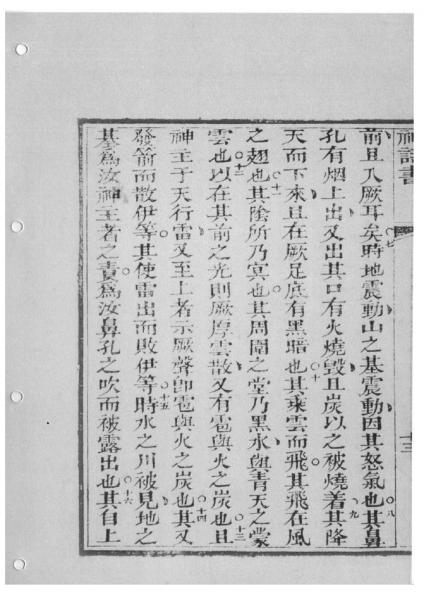 神詩書 十三
前且入厥耳矣○七時地震動山之基震動因其怒氣也○八其鼻
孔有烟上出又出其口有火燒毀且炭以之被燒着○九其降
天而下來且在厥足底有黑暗也○十其乘雲而飛其飛在風
之翅也○十一其陰所乃冥也其周圍之堂乃黑水與青天之蒙
雲也○十二以在其前之光則厥厚雲散又有雹與火之炭也○十三且
神主于天行雷又至上者示厥聲即雹與火之炭也○十四其又
發箭而散伊等其使雷出而敗伊等○十五時水之川被見地之
基為汝神主者之責為汝鼻孔之吹而被露出也○十六其自上